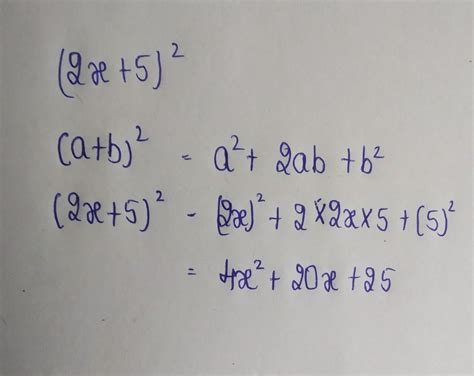 (2x+5)²
(a+b)² = a²+ 2ab +b²
(2x+5)² - (2x)² + 2×2x×5 +(5)²
= 4x² + 20x +25